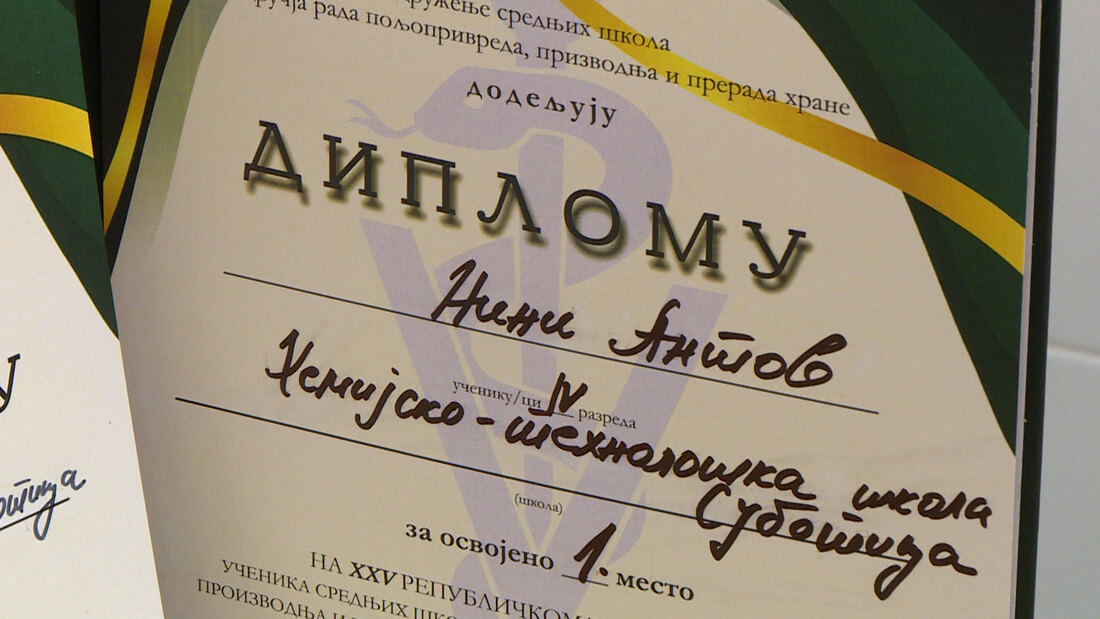 дружење средњих школа
ручја рада пољопривреда, призводња и прерада хране
додељују
ДИПЛОМУ
Нини Антов
ученику/ци IV разреда
Хемијско-технолошка школа
Суботица
(школа)
за освојено 1. место
НА XXV РЕПУБЛИЧКОМ
УЧЕНИКА СРЕДЊИХ ШКО
ПРОИЗВОДЊА И